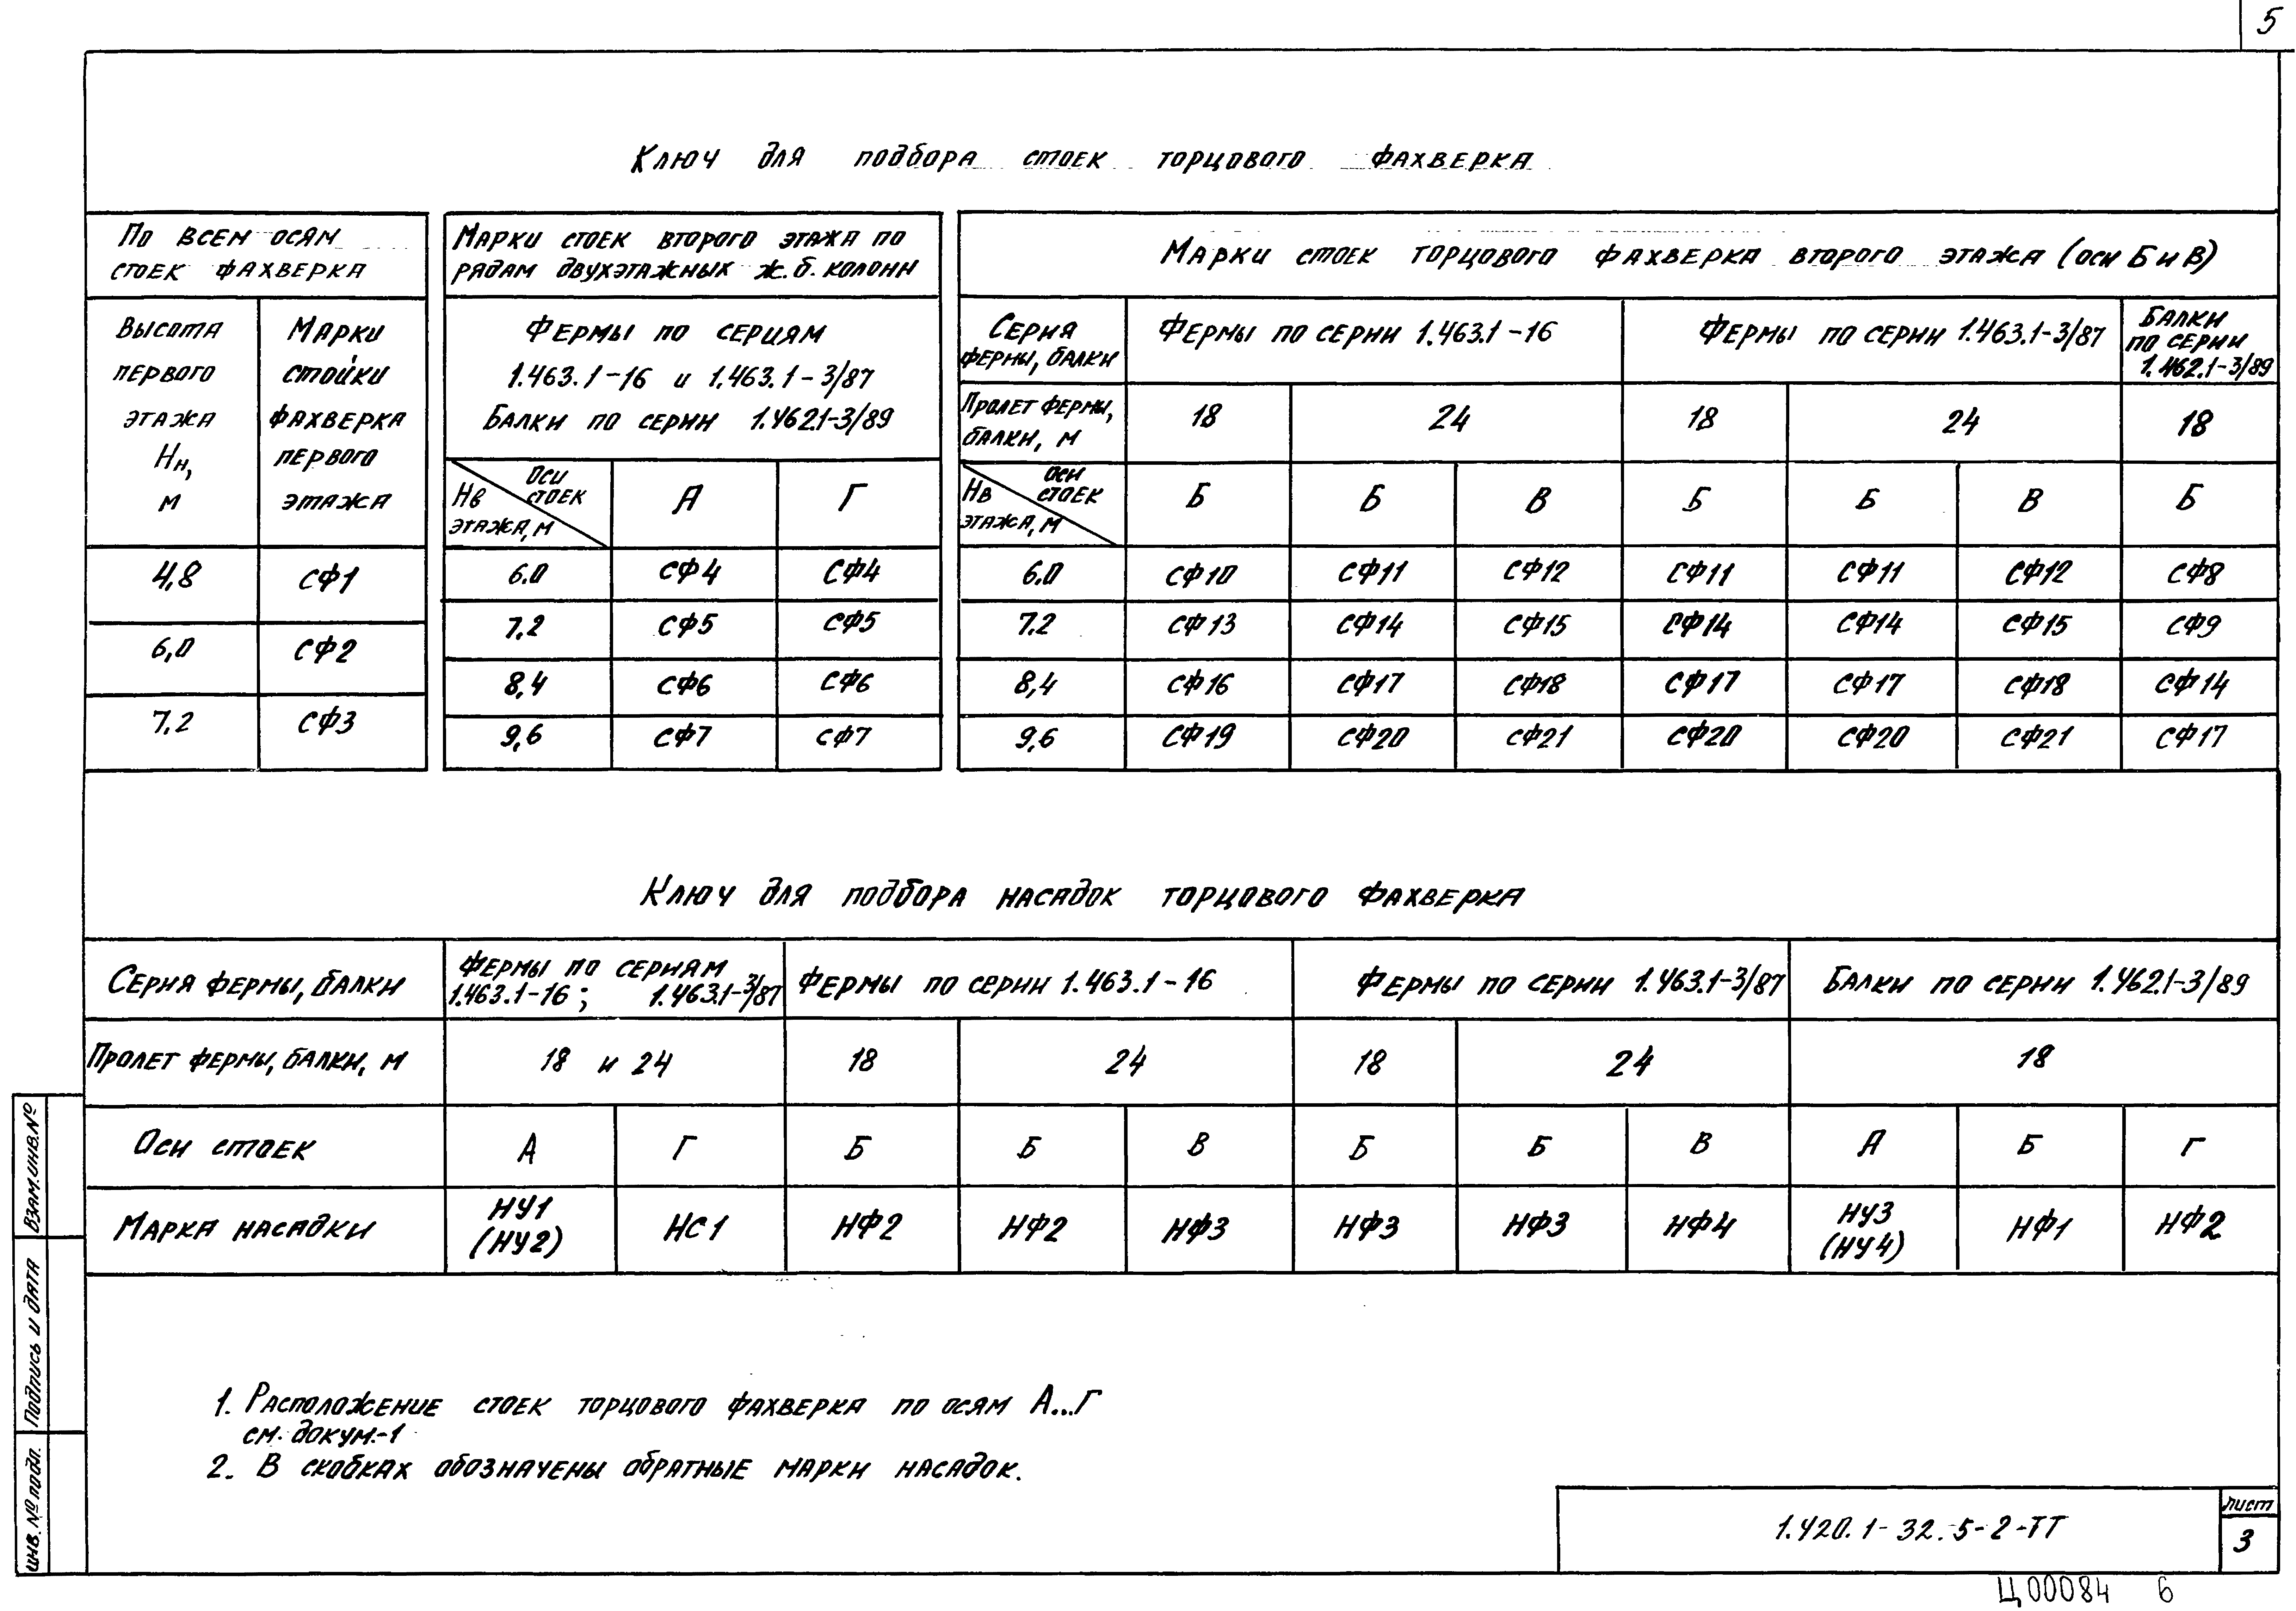 5
Ключ для подбора стоек торцового фахверка
По всем осям
стоек фахверка
Высота
первого
этажа
Нн,
м
Марки
стойки
фахверка
первого
этажа
4,8 СФ1
6,0 СФ2
7,2 СФ3
Марки стоек второго этажа по
рядам двухэтажных ж.б. колонн
Фермы по сериям
1.463.1-16 и 1.463.1-3/87
Балки по серии 1.462.1-3/89
Оси
стоек
Нв
этажа, м
А Г
6.0 СФ4 СФ4
7.2 СФ5 СФ5
8,4 СФ6 СФ6
9,6 СФ7 СФ7
Марки стоек торцового фахверка второго этажа (оси Б и В)
Серия
фермы, балки
Фермы по серии 1.463.1-16
Фермы по серии 1.463.1-3/87
Балки
по серии
1.462.1-3/89
Пролет фермы,
балки, м
18 24 18 24 18
Оси
стоек
Нв
этажа, м
Б Б В Б Б В Б
6.0 СФ10 СФ11 СФ12 СФ11 СФ11 СФ12 СФ8
7.2 СФ13 СФ14 СФ15 СФ14 СФ14 СФ15 СФ9
8,4 СФ16 СФ17 СФ18 СФ17 СФ17 СФ18 СФ14
9,6 СФ19 СФ20 СФ21 СФ20 СФ20 СФ21 СФ17
Ключ для подбора насадок торцового фахверка
Серия фермы, балки
Фермы по сериям
1.463.1-16; 1.463.1-3/87
Фермы по серии 1.463.1-16
Фермы по серии 1.463.1-3/87
Балки по серии 1.462.1-3/89
Пролет фермы, балки, м 18 и 24 18 24 18 24 18
Оси стоек А Г Б Б В Б Б В А Б Г
Марка насадки
НУ1
(НУ2)
НС1 НФ2 НФ2 НФ3 НФ3 НФ3 НФ4
НУ3
(НУ4)
НФ1 НФ2
1. Расположение стоек торцового фахверка по осям А...Г
см. докум.-1
2. В скобках обозначены обратные марки насадок.
Взам.инв.№
Подпись и дата
инв.№ подл.
1.420.1-32.5-2-ТТ
лист
3
Ц00084 6